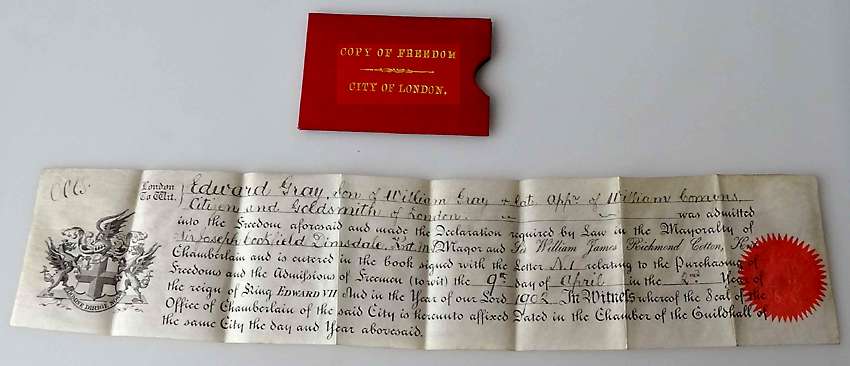 COPY OF FREEDOM
CITY OF LONDON.
London
To Wit.
Edward Gray, son of William Gray & late Appr. of William Comyns,
Citizen and Goldsmith of London. was admitted
into the Freedom aforesaid and made the Declaration required by Law in the Mayoralty of
Sir Joseph Cockfield Dimsdale, Knt. Mayor and Sir William James Richmond Cotton, Knt.
Chamberlain and is entered in the book signed with the Letter relating to the Purchasing of
Freedoms and the Admissions of Freemen (to wit) the 9th day of April in the 2nd Year of
the reign of King EDWARD VII And in the Year of our Lord 1902 In Witness whereof the Seal of the
Office of Chamberlain of the said City is hereunto affixed Dated in the Chamber of the Guildhall of
the same City the day and Year abovesaid.
DOMINE DIRIGE NOS